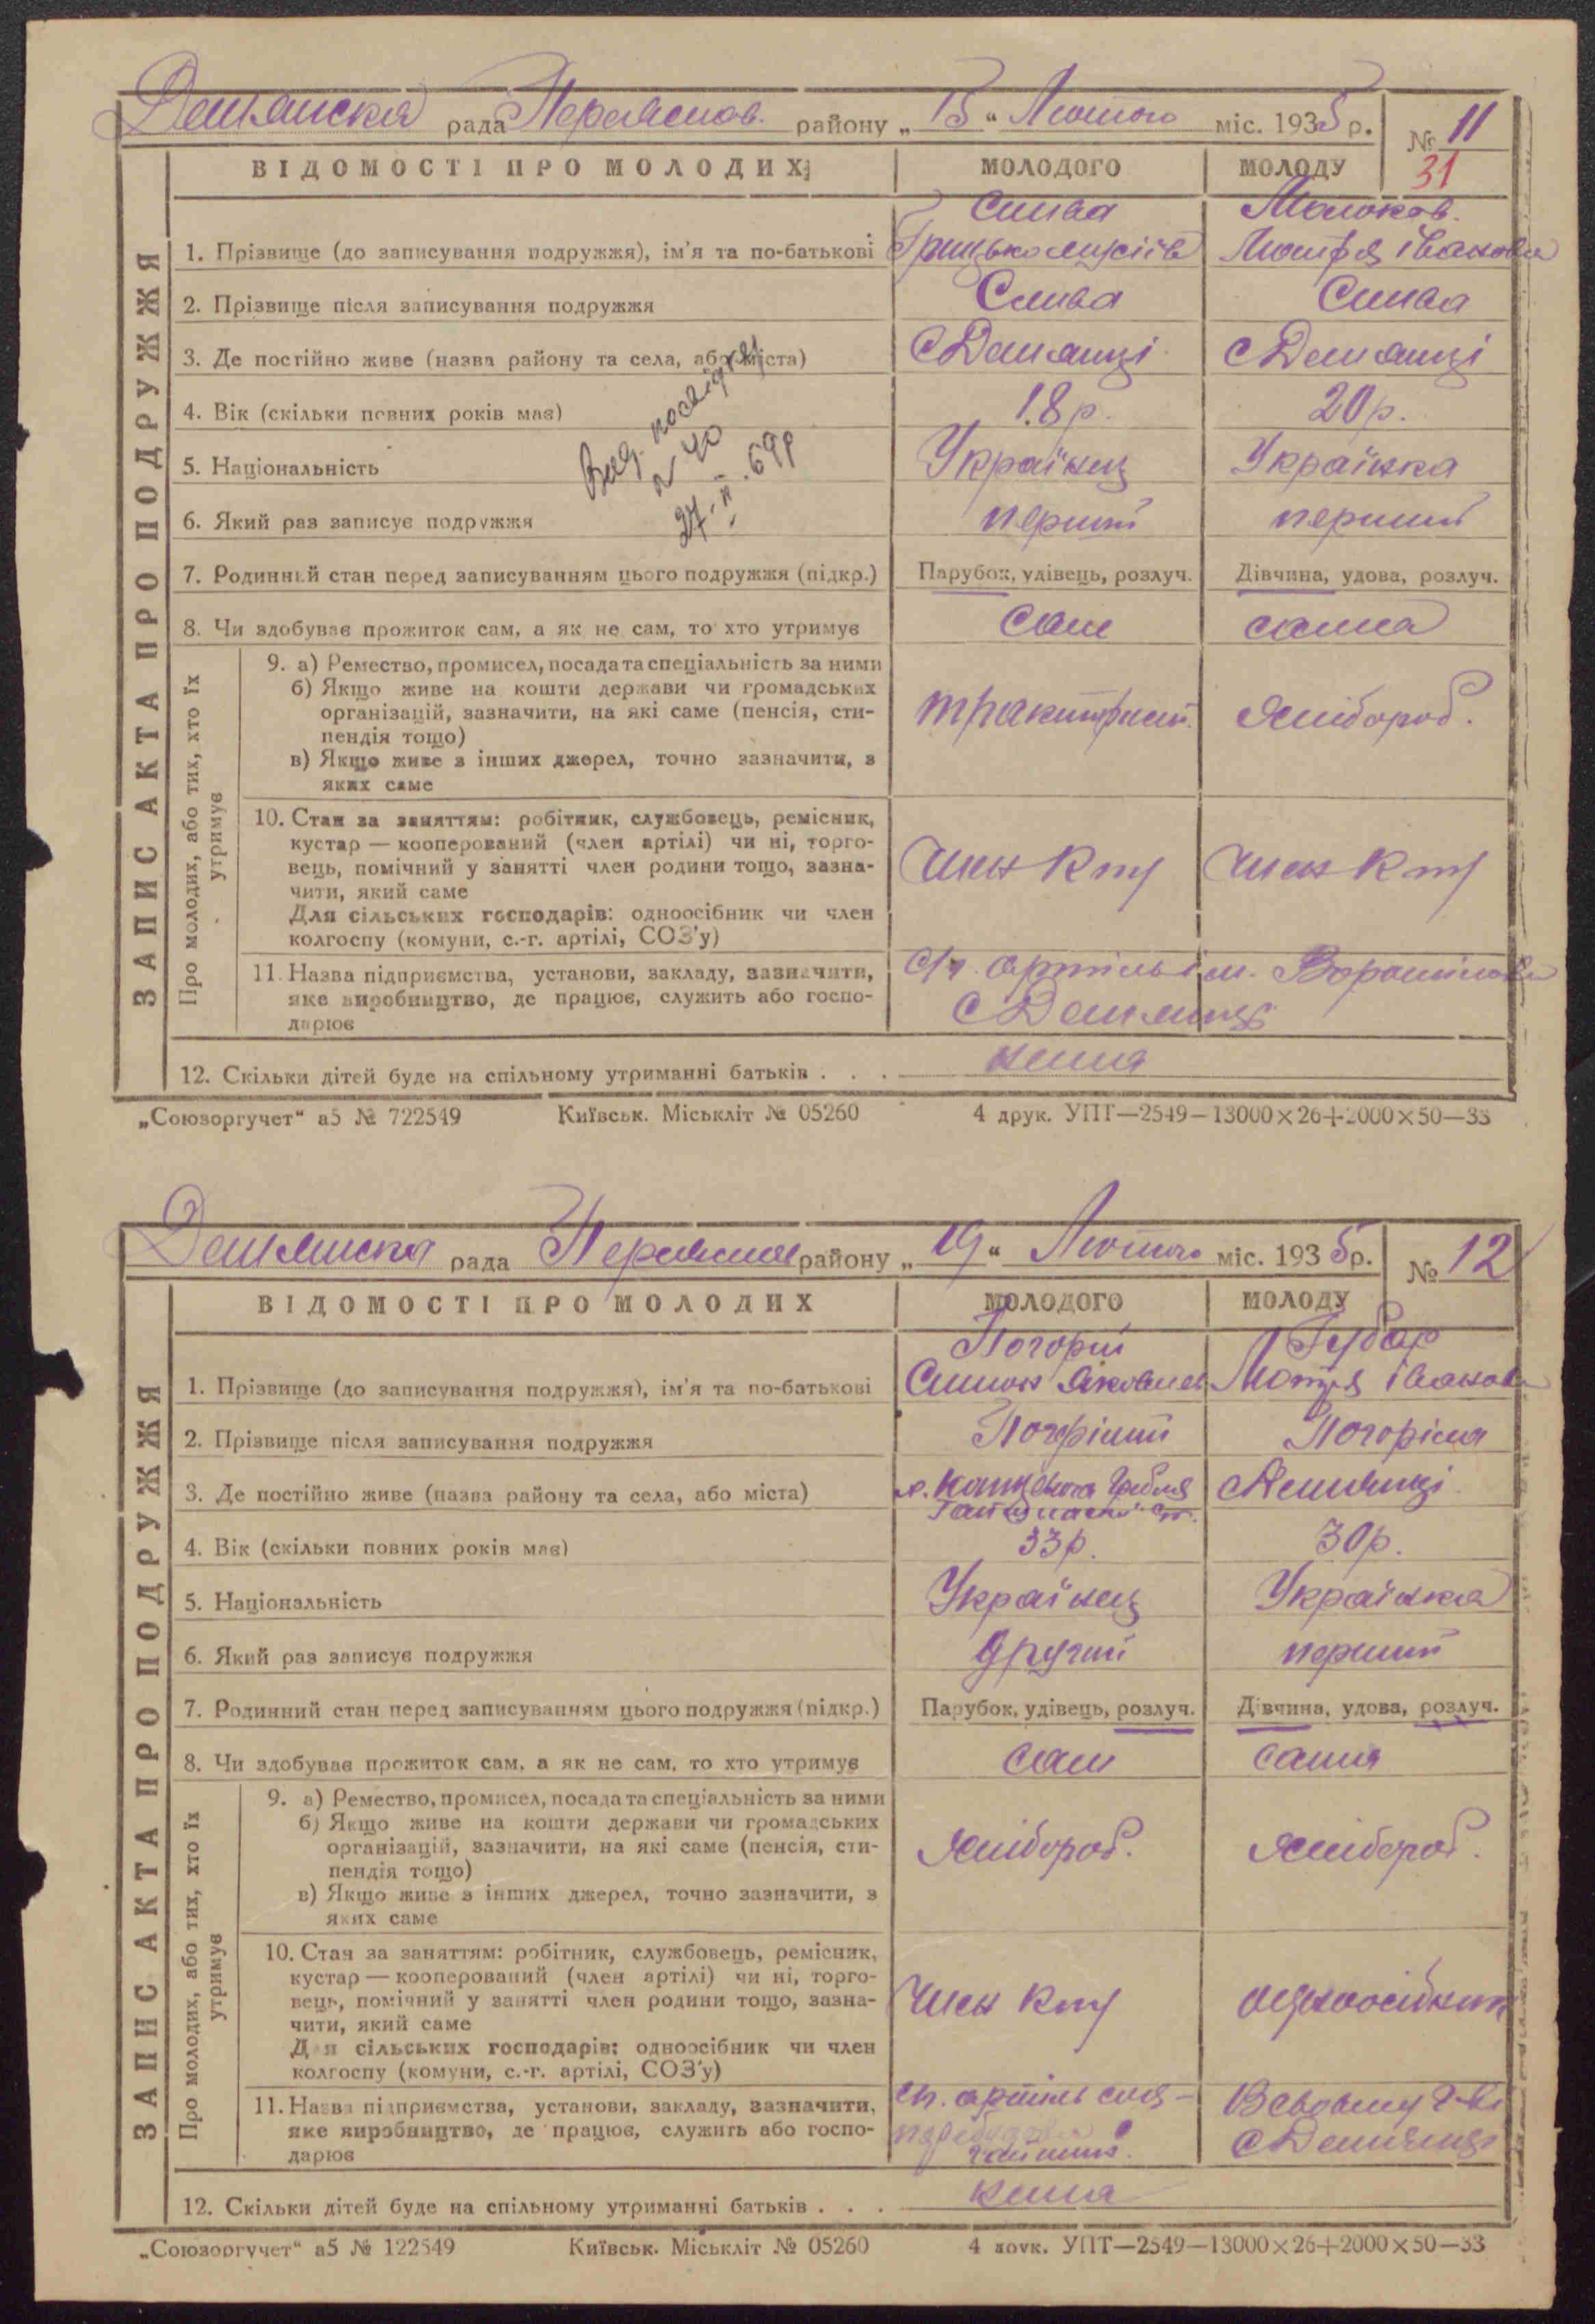 Демʼянська рада Переяслов. району „ 15 “ Лютого міс. 1935 р.
№ 11
31
ВІДОМОСТІ ПРО МОЛОДИХ
МОЛОДОГО
МОЛОДУ
ЗАПИС АКТА ПРО ПОДРУЖЖЯ
1. Прізвище (до записування подружжя), ім'я та по-батькові
Слива
Грицько
Мотря Іванова
2. Прізвище після записування подружжя
Слива
Слива
3. Де постійно живе (назва району та села, або міста)
с Демʼянці
с Демʼянці
4. Вік (скільки повних років має)
18 р.
20 р.
Вид. посвідку
№ 40
27.II.69р
5. Національність
Українец
Українка
6. Який раз записує подружжя
перший
перший
7. Родинний стан перед записуванням цього подружжя (підкр.)
Парубок, удівець, розлуч.
Дівчина, удова, розлуч.
8. Чи здобуває прожиток сам, а як не сам, то хто утримує
сам
сама
Про молодих, або тих, хто їх утримує
9. а) Ремество, промисел, посада та спеціальність за ними
б) Якщо живе на кошти держави чи громадських
організацій, зазначити, на які саме (пенсія, сти-
пендія тощо)
в) Якщо живе з інших джерел, точно зазначити, з
яких саме
тракторист
хлібороб.
10. Стан за заняттям: робітник, службовець, ремісник,
кустар — кооперований (член артілі) чи ні, торго-
вець, помічний у занятті член родини тощо, зазна-
чити, який саме
Для сільських господарів: одноосібник чи член
колгоспу (комуни, с.-г. артілі, СОЗ'у)
член к
член к
11. Назва підприємства, установи, закладу, зазначити,
яке виробництво, де працює, служить або госпо-
дарює
с/г. артіль ім. Ворошилова
с Демʼянці
12. Скільки дітей буде на спільному утриманні батьків . . .
нема
„Союзоргучет“ а5 № 722549
Київськ. Міськліт № 05260
4 друк. УПТ—2549—13000×26+2000×50—33
Демʼянська рада району „ 19 “ Лютого міс. 1935 р.
№ 12
ВІДОМОСТІ ПРО МОЛОДИХ
МОЛОДОГО
МОЛОДУ
ЗАПИС АКТА ПРО ПОДРУЖЖЯ
1. Прізвище (до записування подружжя), ім'я та по-батькові
Симон Яковлев
Губар
Мотря Іванова
2. Прізвище після записування подружжя
Погорілий
Погоріла
3. Де постійно живе (назва району та села, або міста)
с Демʼянці
4. Вік (скільки повних років має)
33 р.
30 р.
5. Національність
Українец
Українка
6. Який раз записує подружжя
другий
перший
7. Родинний стан перед записуванням цього подружжя (підкр.)
Парубок, удівець, розлуч.
Дівчина, удова, розлуч.
8. Чи здобуває прожиток сам, а як не сам, то хто утримує
сам
сама
Про молодих, або тих, хто їх утримує
9. а) Ремество, промисел, посада та спеціальність за ними
б) Якщо живе на кошти держави чи громадських
організацій, зазначити, на які саме (пенсія, сти-
пендія тощо)
в) Якщо живе з інших джерел, точно зазначити, з
яких саме
хлібороб.
хлібороб.
10. Стан за заняттям: робітник, службовець, ремісник,
кустар — кооперований (член артілі) чи ні, торго-
вець, помічний у занятті член родини тощо, зазна-
чити, який саме
Для сільських господарів: одноосібник чи член
колгоспу (комуни, с.-г. артілі, СОЗ'у)
член к
одноосібник
11. Назва підприємства, установи, закладу, зазначити,
яке виробництво, де працює, служить або госпо-
дарює
артіль
с Демʼянці
12. Скільки дітей буде на спільному утриманні батьків . . .
нема
„Союзоргучет“ а5 № 122549
Київськ. Міськліт № 05260
4 друк. УПТ—2549—13000×26+2000×50—33